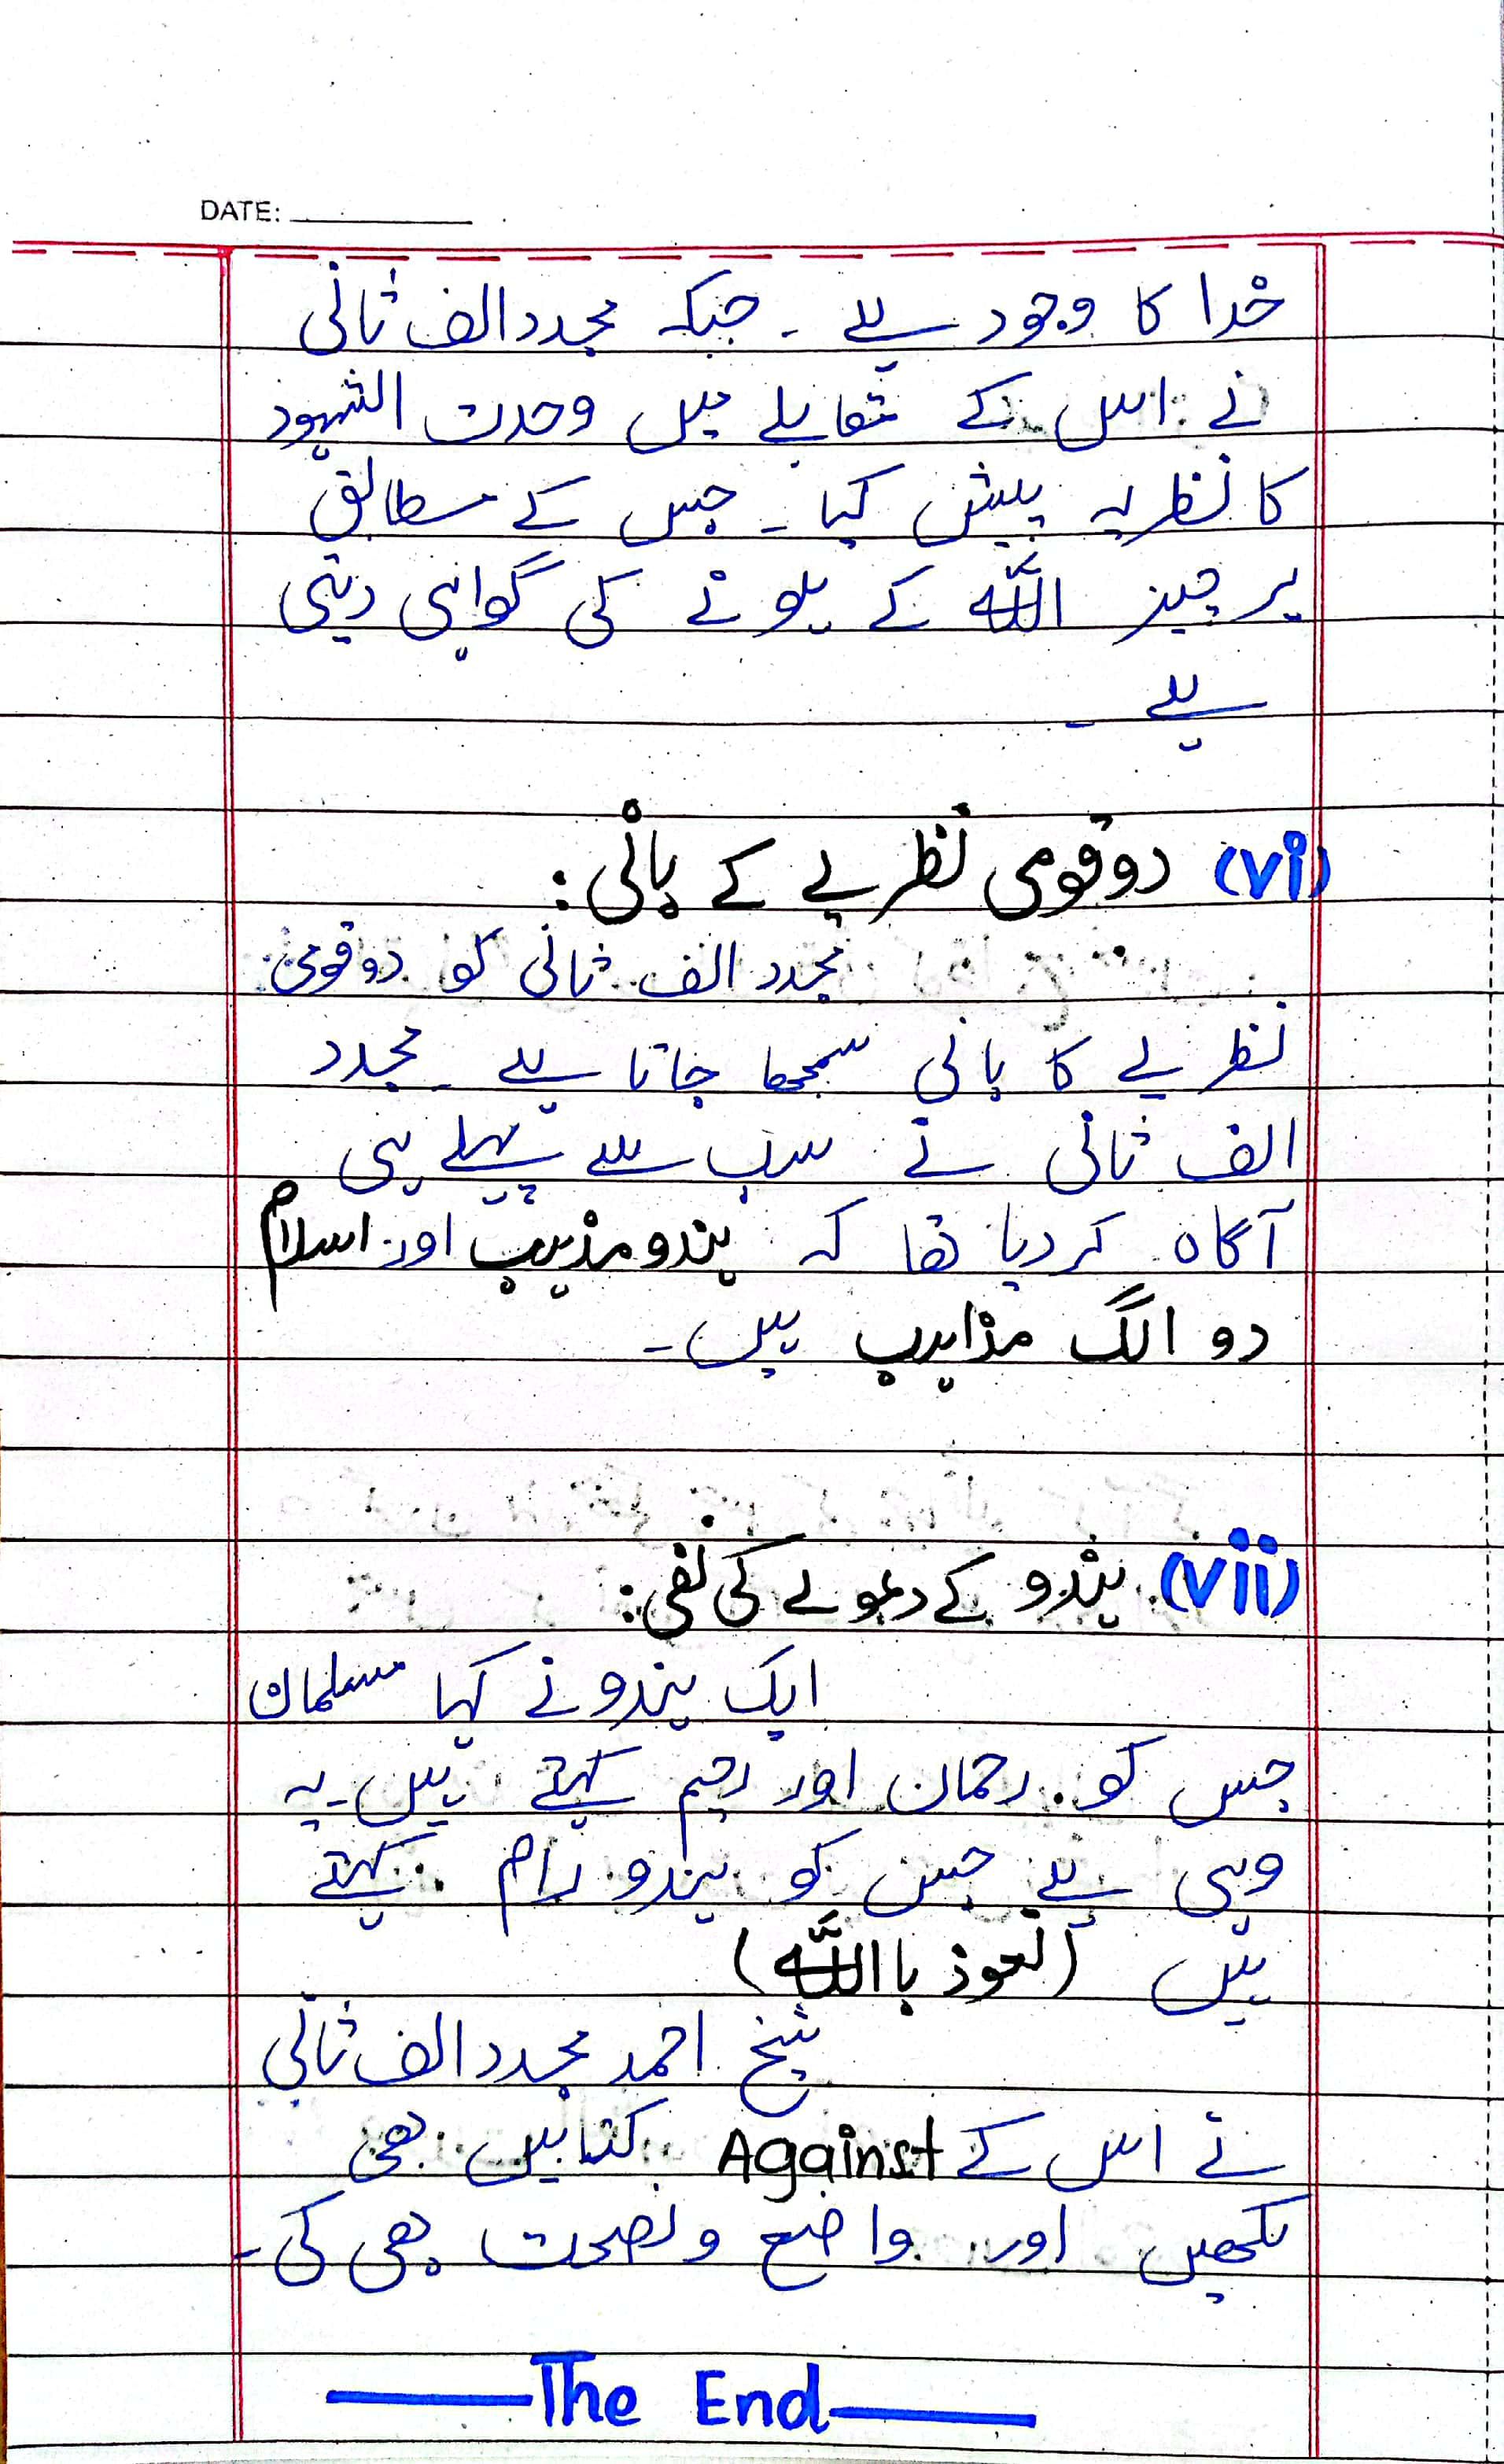 DATE:
خدا کا وجود ہے ۔ جبکہ مجدد الف ثانی
نے اس کے مقابلے میں وحدت الشہود
کا نظریہ پیش کیا ۔ جس کے مطابق
ہر چیز اللّٰہ کے ہونے کی گواہی دیتی
ہے ۔
(vi) دو قومی نظریے کے بانی :
مجدد الف ثانی کو دو قومی
نظریے کا بانی سمجھا جاتا ہے ۔ مجدد
الف ثانی نے سب سے پہلے ہی
آگاہ کر دیا تھا کہ ہندو مذہب اور اسلام
دو الگ مذاہب ہیں ۔
(vii) ہندو کے دعوے کی نفی :
ایک ہندو نے کہا مسلمان
جس کو رحمان اور رحیم کہتے ہیں ۔ یہ
وہی ہے جس کو ہندو رام کہتے
ہیں (نعوذ بااللّٰہ)
شیخ احمد مجدد الف ثانی
نے اس کے Against کتابیں بھی
لکھیں اور واضع ونصحت بھی کی ۔
The End